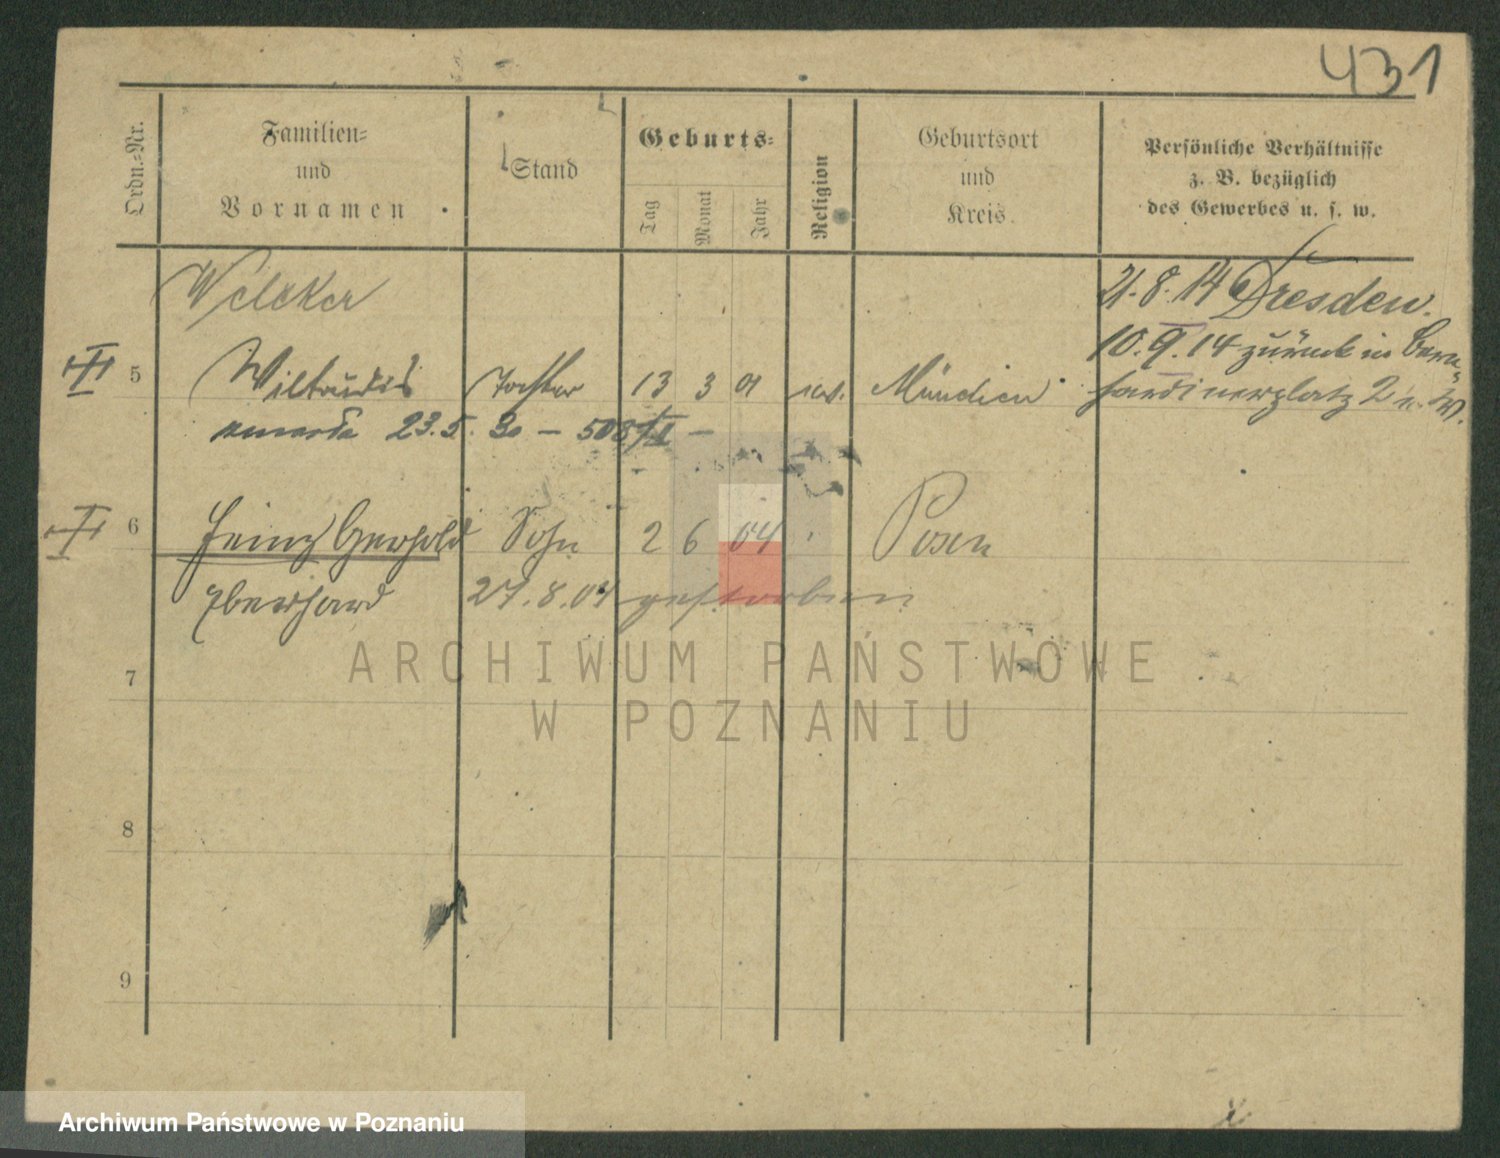 431
Ordn.-Nr.
Familien-
und
Vornamen
Stand
Geburts-
Tag
Monat
Jahr
Religion
Geburtsort
und
Kreis.
Persönliche Verhältnisse
z. B. bezüglich
des Gewerbes u. s. w.
Welcker
21.8.14 Dresden.
10.9.14 zurück in Bern-
hardinerplatz 2 u. W.
5 Wiltrudis Tochter 13 3 01 ev. München
zmarła 23.5.30 – 508/II –
6 Heinz Gerhold Sohn 2 6 04 Posen
Eberhard 27.8.04 gestorben
7
8
9
ARCHIWUM PAŃSTWOWE
W POZNANIU
Archiwum Państwowe w Poznaniu